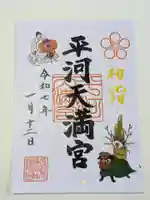 初詣
平河天満宮
令和七年
一月十三日